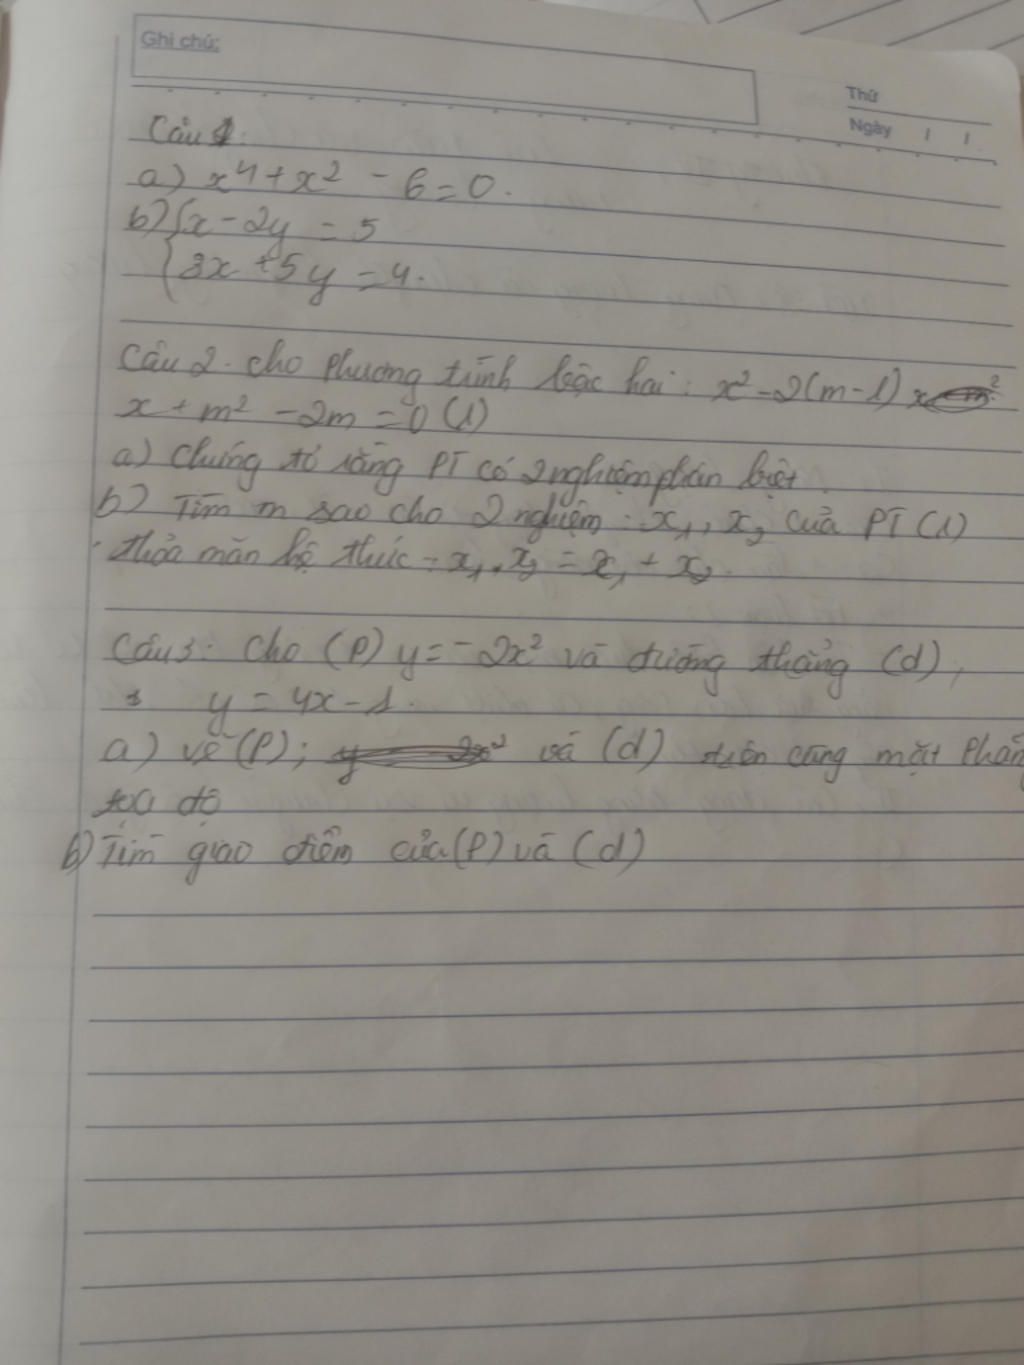 Ghi chú:
Thứ
Ngày / /
Câu 1:
a) x⁴ + x² - 6 = 0.
b) { x - 2y = 5
3x + 5y = 4.
Câu 2. cho phương trình bậc hai: x² - 2(m-1)
x + m² - 2m = 0 (1)
a) Chứng tỏ rằng PT có 2 nghiệm phân biệt.
b) Tìm m sao cho 2 nghiệm: x₁, x₂ của PT (1)
thỏa mãn hệ thức: x₁.x₂ = x₁ + x₂.
Câu 3: Cho (P) y = -2x² và đường thẳng (d),
y = 4x - 1.
a) vẽ (P); và (d) trên cùng mặt phẳn
tọa độ
b) Tìm giao điểm của (P) và (d)